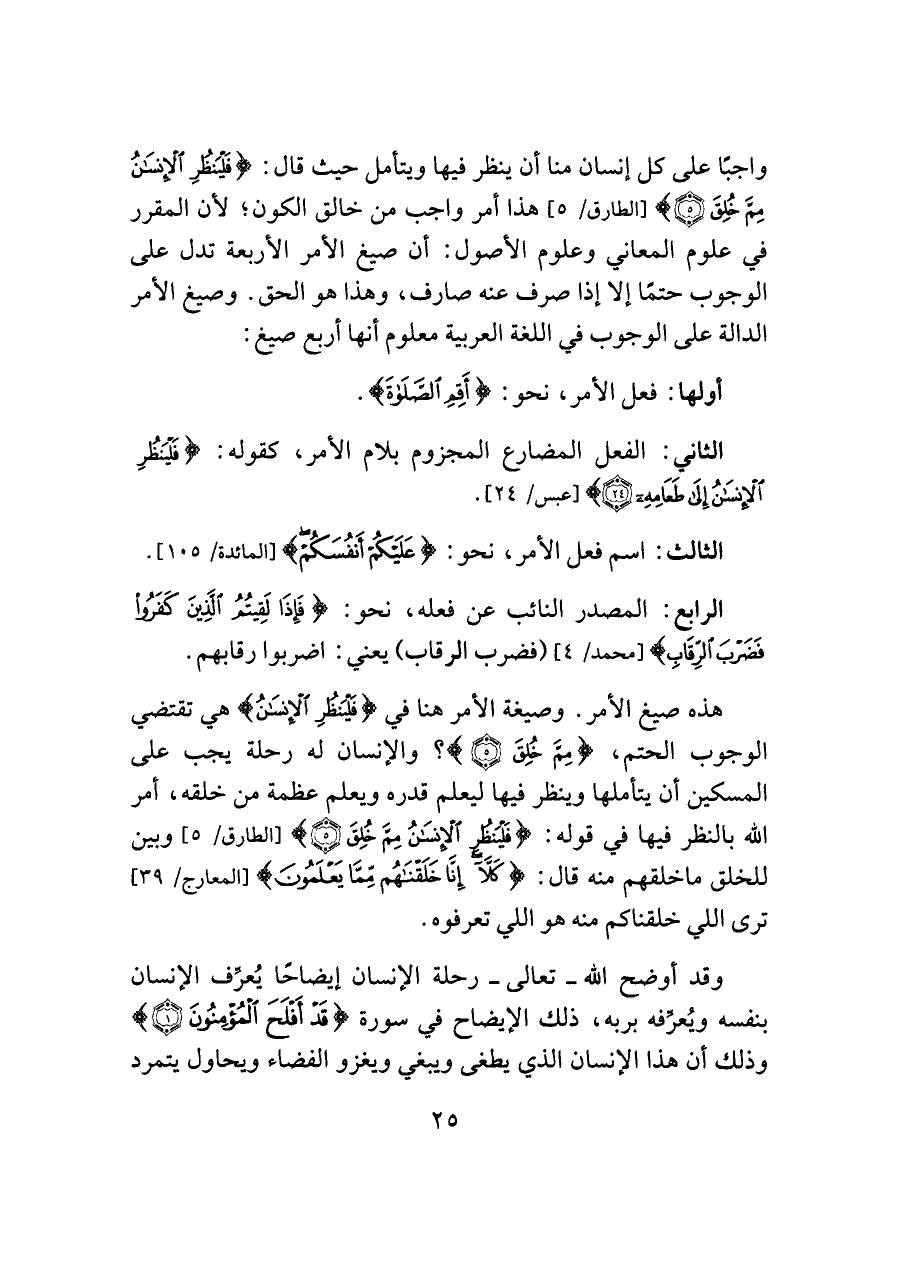 واجبًا على كل إنسان منا أن ينظر فيها ويتأمل حيث قال: ﴿فَلْيَنظُرِ ٱلْإِنسَٰنُ
مِمَّ خُلِقَ ۝٥﴾ [الطارق/ ٥] هذا أمر واجب من خالق الكون؛ لأن المقرر
في علوم المعاني وعلوم الأصول: أن صيغ الأمر الأربعة تدل على
الوجوب حتمًا إلا إذا صرف عنه صارف، وهذا هو الحق. وصيغ الأمر
الدالة على الوجوب في اللغة العربية معلوم أنها أربع صيغ:
أولها: فعل الأمر، نحو: ﴿أَقِمِ ٱلصَّلَوٰةَ﴾.
الثاني: الفعل المضارع المجزوم بلام الأمر، كقوله: ﴿فَلْيَنظُرِ
ٱلْإِنسَٰنُ إِلَىٰ طَعَامِهِۦٓ ۝٢٤﴾ [عبس/ ٢٤].
الثالث: اسم فعل الأمر، نحو: ﴿عَلَيْكُمْ أَنفُسَكُمْۖ﴾ [المائدة/ ١٠٥].
الرابع: المصدر النائب عن فعله، نحو: ﴿فَإِذَا لَقِيتُمُ ٱلَّذِينَ كَفَرُوا۟
فَضَرْبَ ٱلرِّقَابِ﴾ [محمد/ ٤] (فضرب الرقاب) يعني: اضربوا رقابهم.
هذه صيغ الأمر. وصيغة الأمر هنا في ﴿فَلْيَنظُرِ ٱلْإِنسَٰنُ﴾ هي تقتضي
الوجوب الحتم، ﴿مِمَّ خُلِقَ ۝٥﴾؟ والإنسان له رحلة يجب على
المسكين أن يتأملها وينظر فيها ليعلم قدره ويعلم عظمة من خلقه، أمر
الله بالنظر فيها في قوله: ﴿فَلْيَنظُرِ ٱلْإِنسَٰنُ مِمَّ خُلِقَ ۝٥﴾ [الطارق/ ٥] وبين
للخلق ماخلقهم منه قال: ﴿كَلَّآۖ إِنَّا خَلَقْنَٰهُم مِّمَّا يَعْلَمُونَ﴾ [المعارج/ ٣٩]
ترى اللي خلقناكم منه هو اللي تعرفوه.
وقد أوضح الله ـ تعالى ـ رحلة الإنسان إيضاحًا يُعرِّف الإنسان
بنفسه ويُعرِّفه بربه، ذلك الإيضاح في سورة ﴿قَدْ أَفْلَحَ ٱلْمُؤْمِنُونَ ۝١﴾
وذلك أن هذا الإنسان الذي يطغى ويبغي ويغزو الفضاء ويحاول يتمرد
٢٥